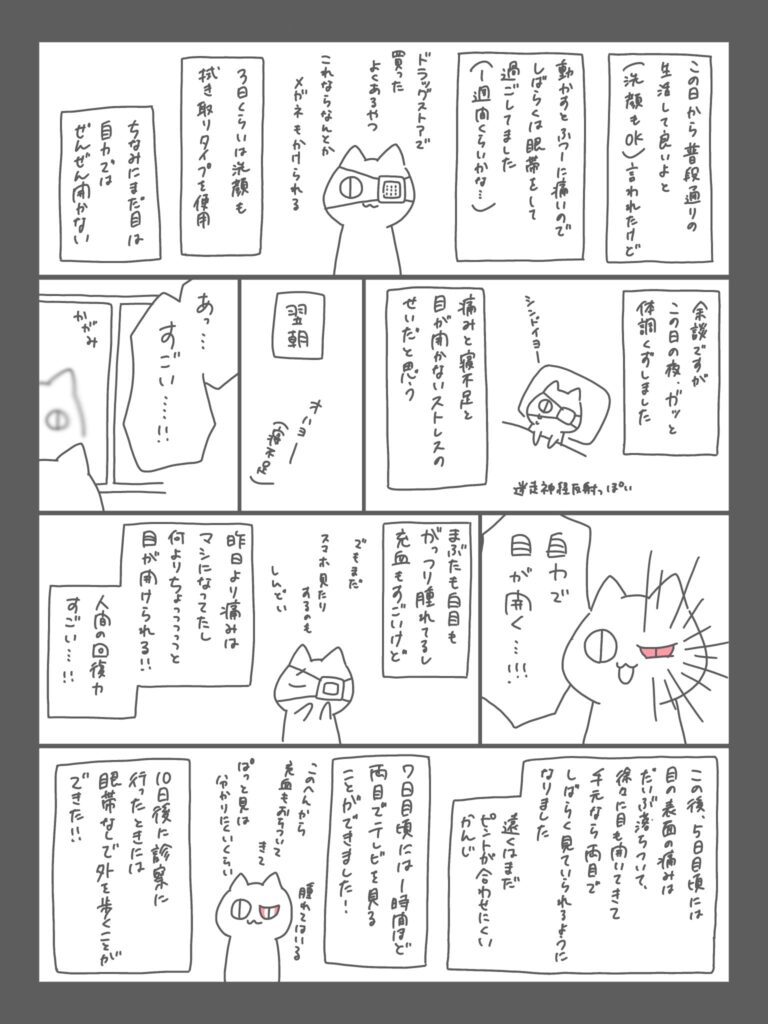 この日から普段通りの
生活して良いよと
(洗顔もOK)言われたけど
動かすとふつーに痛いので
しばらくは眼帯をして
過ごしてました
(1週間くらいかな…)
ドラッグストアで
買った
よくあるやつ
これならなんとか
メガネもかけられる
3日くらいは洗顔も
拭き取りタイプを使用
ちなみにまだ目は
自力では
ぜんぜん開かない
余談ですが
この日の夜、ガッと
体調くずしました
シンドイヨー
迷走神経反射っぽい
痛みと寝不足と
目が開かないストレスの
せいだと思う
翌朝
オハヨー
(寝不足)
あっ…
すごい……!!
かがみ
自力で
目が開く…!!!
まぶたも白目も
がっつり腫れてるし
充血もすごいけど
でもまだ
スマホ見たり
するのも
しんどい
昨日より痛みは
マシになってたし
何よりちょっっっっと
目が開けられる!!
人間の回復力
すごい…!!
この後、5日目頃には
目の表面の痛みは
だいぶ落ちついて、
徐々に目も開いてきて
手元なら両目で
しばらく見ていられるように
なりました
遠くはまだ
ピントが合わせにくい
かんじ
7日目頃には1時間ほど
両目でテレビを見る
ことができました!
このへんから
充血もおちついて
きて
ぱっと見は
分かりにくいくらい
腫れてはいる
10日後に診察に
行ったときには
眼帯なしで外を歩くことが
できた!!